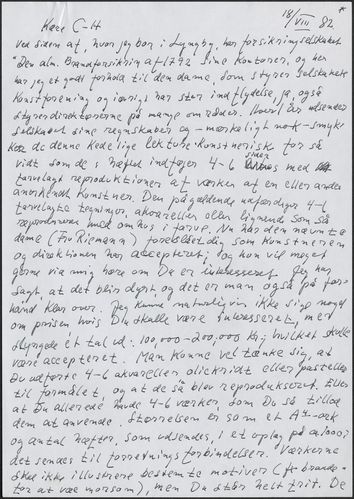 18/VIII 82
Kære C-H
Ved siden af, hvor jeg bor i Lyngby, har forsikringsselskabet
"Den alm. Brandforsikring af 1792" sine kontorer, og her
har jeg et godt forhold til den dame, som styrer selskabets
kunstforening og iøvrigt har stor indflydelse, ja, også
styrer direktørerne på mange områder. Hvert år udsender
selskabet sine regnskaber og - mærkeligt nok - smyk-
ker de denne kedelige lekture kunstnerisk for så
vidt som de i hæftet indføjer 4-6 sider med
farvelagt reproduktioner af værker af en eller anden
anerkendt kunstner. Den pågældende udfærdiger 4-6
farvelagte tegninger, akvareller eller lignende som så
reproduceres med omhu i farve. Nu har den nævnte
dame (Fru Riemann) foreslået dig, som kunstneren
og direktionen har accepteret, og hun vil meget
gerne via mig høre om Du er interesseret. Jeg har
sagt, at det blir dyrt og det er man også på for-
hånd klar over. Jeg kunne naturligvis ikke sige noget
om prisen hvis Du skulle være interesseret, men
slyngede et tal ud: 100,000-200,000 kr, hvilket skulle
være accepteret. Man kunne vel tænke sig, at
Du udførte 4-6 akvareller oliekridt eller pasteller
til formålet, og at de så blev reproduceret. Eller
at Du allerede havde 4-6 værker, som Du så tillod
dem at anvende. Størrelsen er som et A4-ark
og antal hæfter, som udsendes, i et oplag på
det sendes til forretningsforbindelser. Værkerne
skal ikke illustrere bestemte motiver (ft brande-
for at være morsom), men Du står helt frit. De